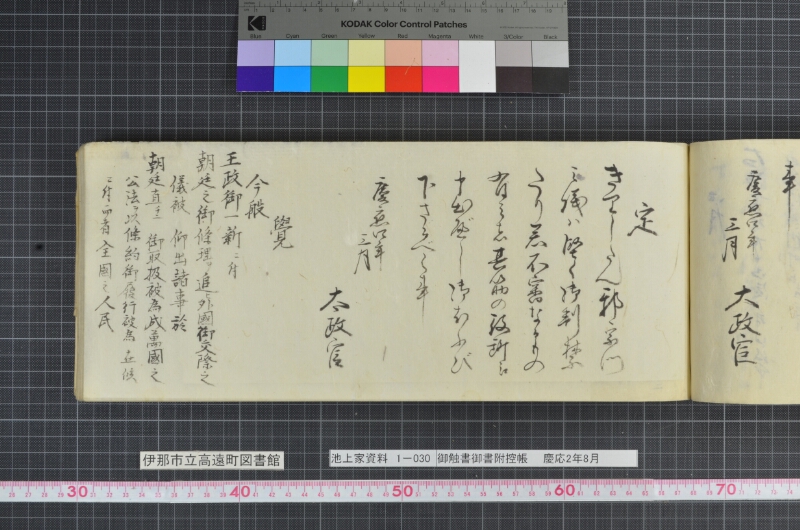 KODAK Color Control Patches
Blue Cyan Green Yellow Red Magenta White 3/Color Black
慶応四年
三月
大政官
定
きりしたん邪宗門
之儀ハ堅く御制禁
たり若不審なるもの
有之ハ其筋の役所江
申出べし御ほうび
下さるべく事
慶应四年
三月
太政官
覺
今般
王政御一新ニ付
朝廷之御條理ヲ追外國御交際之
儀被 仰出諸事於
朝廷直ニ御取扱被為成萬國之
公法ヲ以條約御履行被為在候
ニ付而者全國之人民
伊那市立高遠町図書館
池上家資料 1－030 御触書御書附控帳 慶応2年8月
30 40 50 60 70